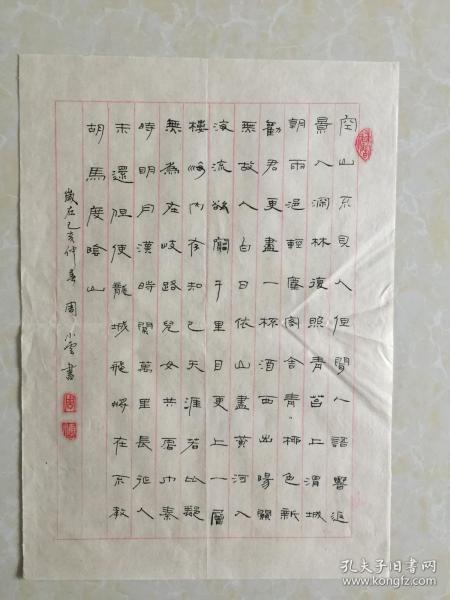 空山不見人但聞人語響返
景入深林復照青苔上渭城
朝雨浥輕塵客舍青〻柳色新
勸君更盡一杯酒西出陽關
無故人白日依山盡黃河入
海流欲窮千里目更上一層
樓海內存知己天涯若比鄰
無為在岐路兒女共沾巾秦
時明月漢時關萬里長征人
未還但使龍城飛將在不教
胡馬度陰山
歲在己亥仲春周小雲書
孔夫子旧书网
www.kongfz.com